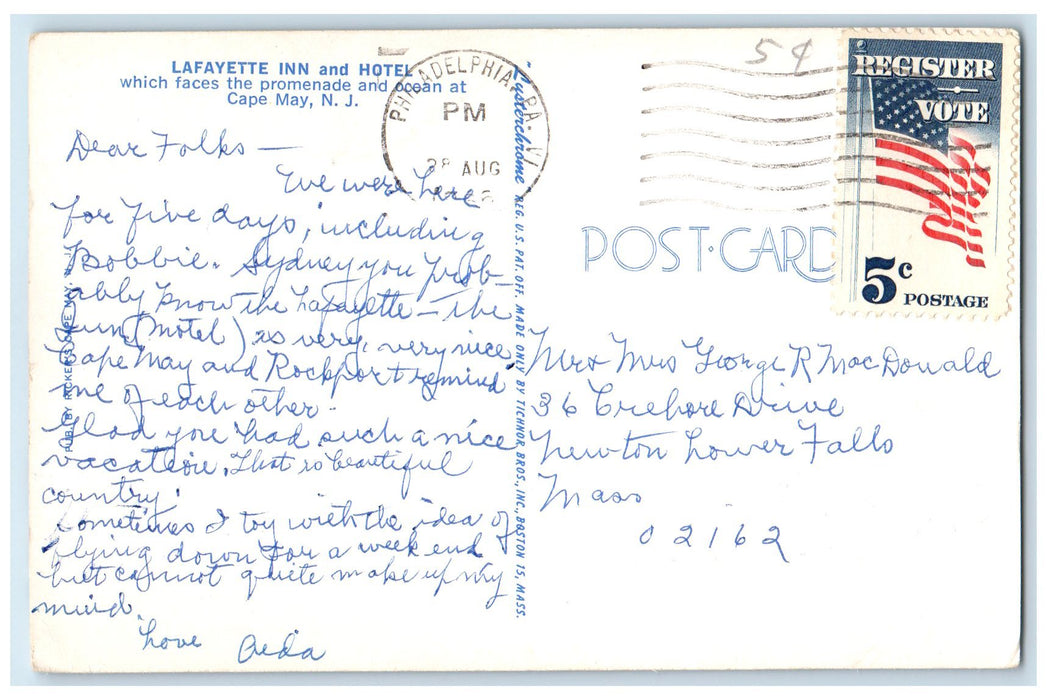 LAFAYETTE INN and HOTEL
which faces the promenade and ocean at
Cape May, N. J.
PHILADELPHIA, PA.
PM
28 AUG
5¢
REGISTER
VOTE
5c POSTAGE
POST·CARD
Dear Folks —
We were here
for five days, including
Bobbie. Sydney you prob-
ably know the Lafayette — the
Inn (Motel) is very, very nice
Cape May and Rockport remind
me of each other.
Glad you had such a nice
vacation. That so beautiful
country!
Sometimes I toy with the idea of
flying down for a week end
but cannot quite make up my
mind.
Love Aida
Mr & Mrs George R MacDonald
36 Crehore Drive
Newton Lower Falls
Mass
02162
PUB. BY RICKER'S CAPE MAY, N. J.
"Lusterchrome" REG. U.S. PAT. OFF. MADE ONLY BY TICHNOR BROS., INC., BOSTON 15, MASS.